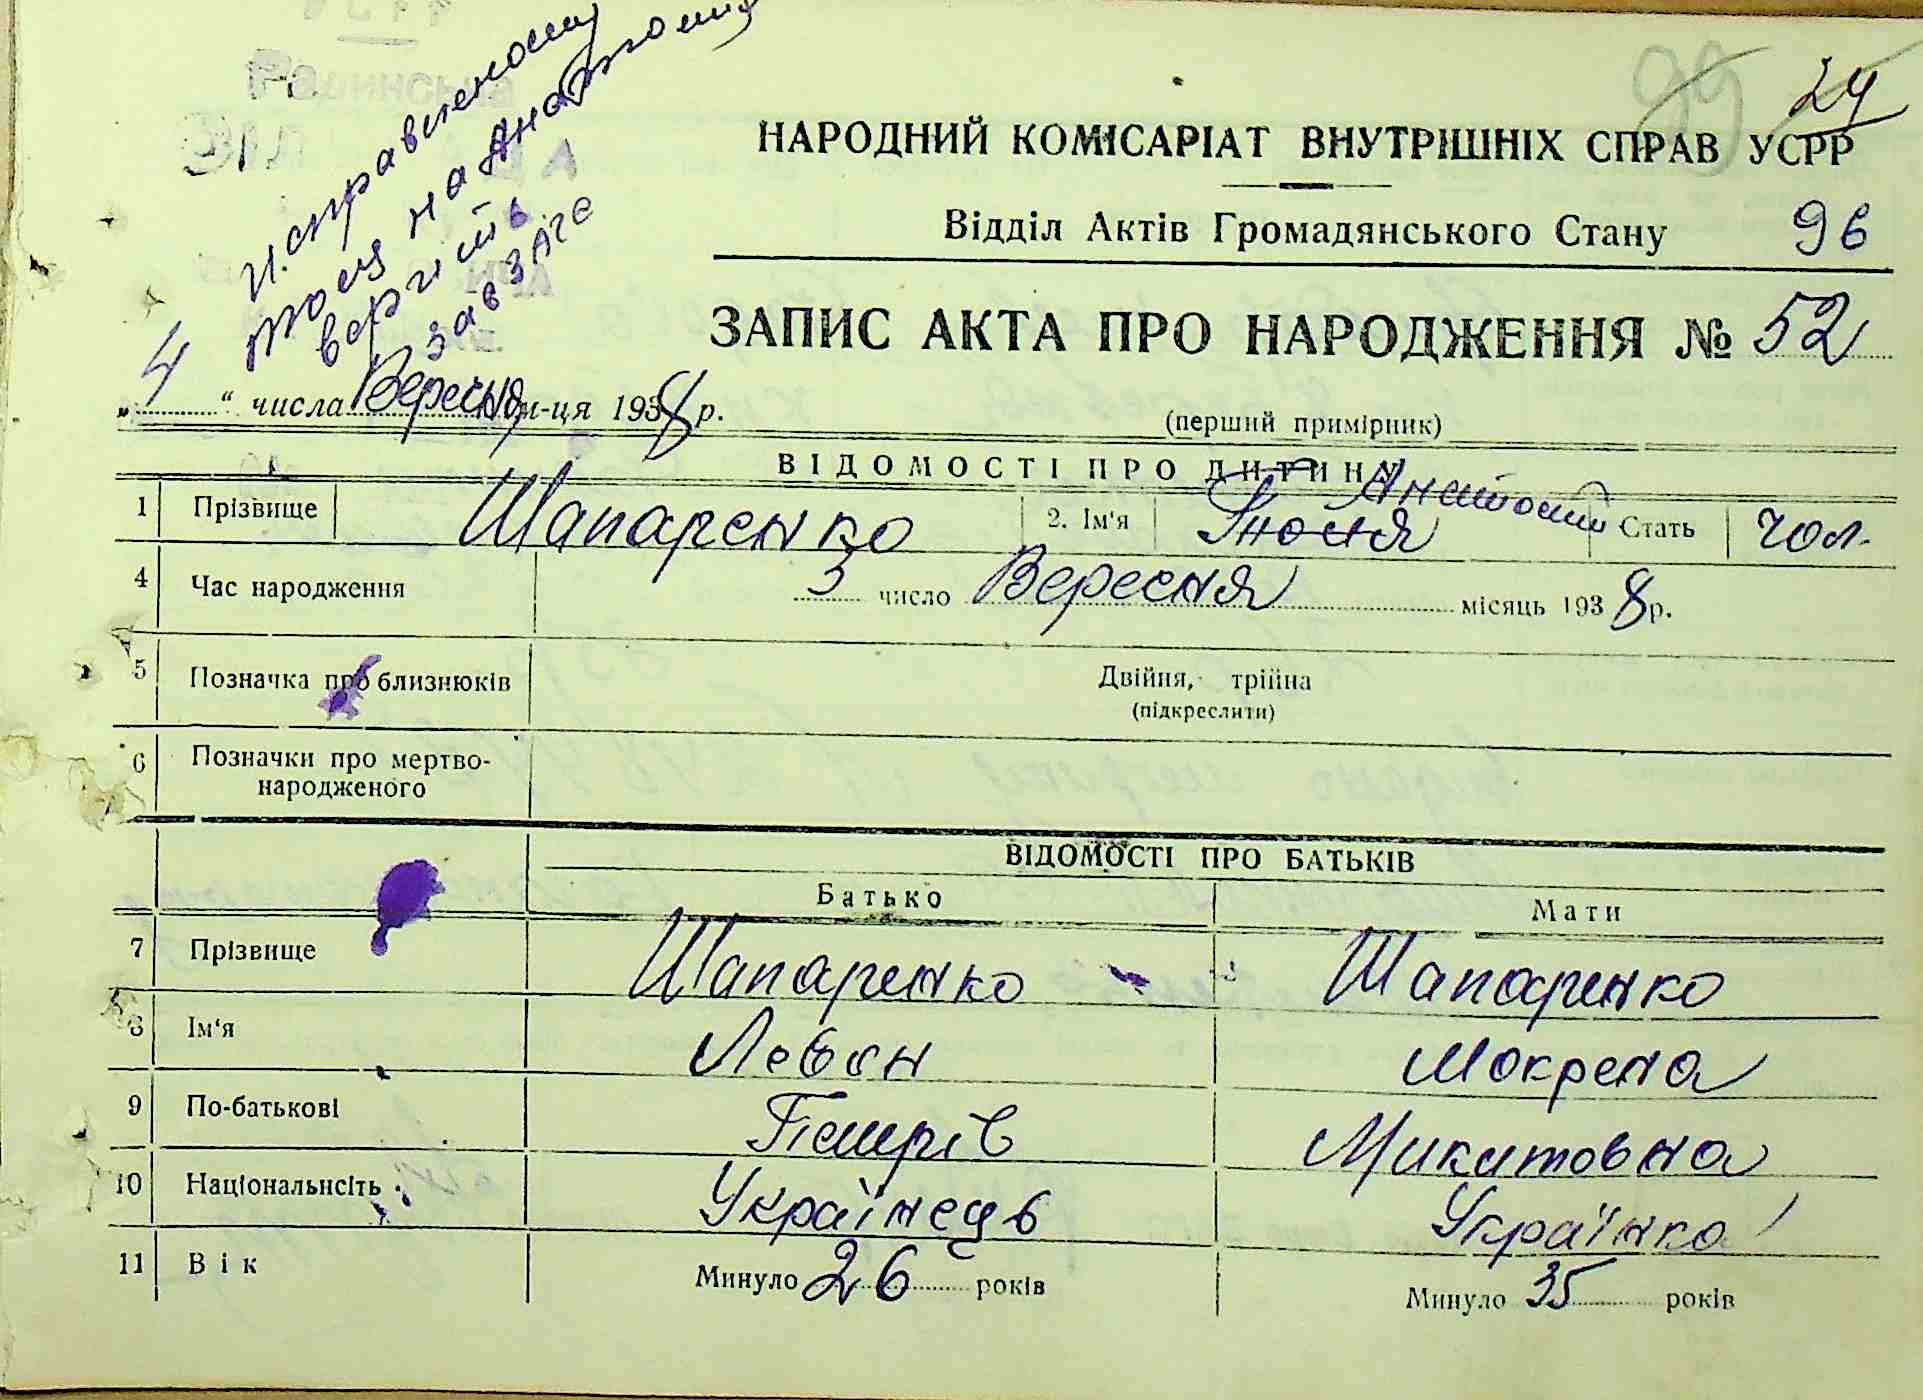 Исправленному
тому на Анатолия
верить
Зав ЗАГС
99 24
НАРОДНИЙ КОМІСАРІАТ ВНУТРІШНІХ СПРАВ УСРР
Відділ Актів Громадянського Стану 96
ЗАПИС АКТА ПРО НАРОДЖЕННЯ № 52
„4“ числа Вересня м-ця 1938 р.
(перший примірник)
ВІДОМОСТІ ПРО ДИТИНУ
1 Прізвище Шапаренко 2. Ім'я Анатолий Стать чол.
4 Час народження 3 число Вересня місяць 1938 р.
5 Позначка про близнюків Двійня, трійна
(підкреслити)
6 Позначки про мертво-
народженого
ВІДОМОСТІ ПРО БАТЬКІВ
Батько Мати
7 Прізвище Шапаренко Шапаренко
8 Ім'я Левон Мокрена
9 По-батькові Петрів Микитовна
10 Національнсіть Українець Українка
11 Вік Минуло 26 років Минуло 35 років